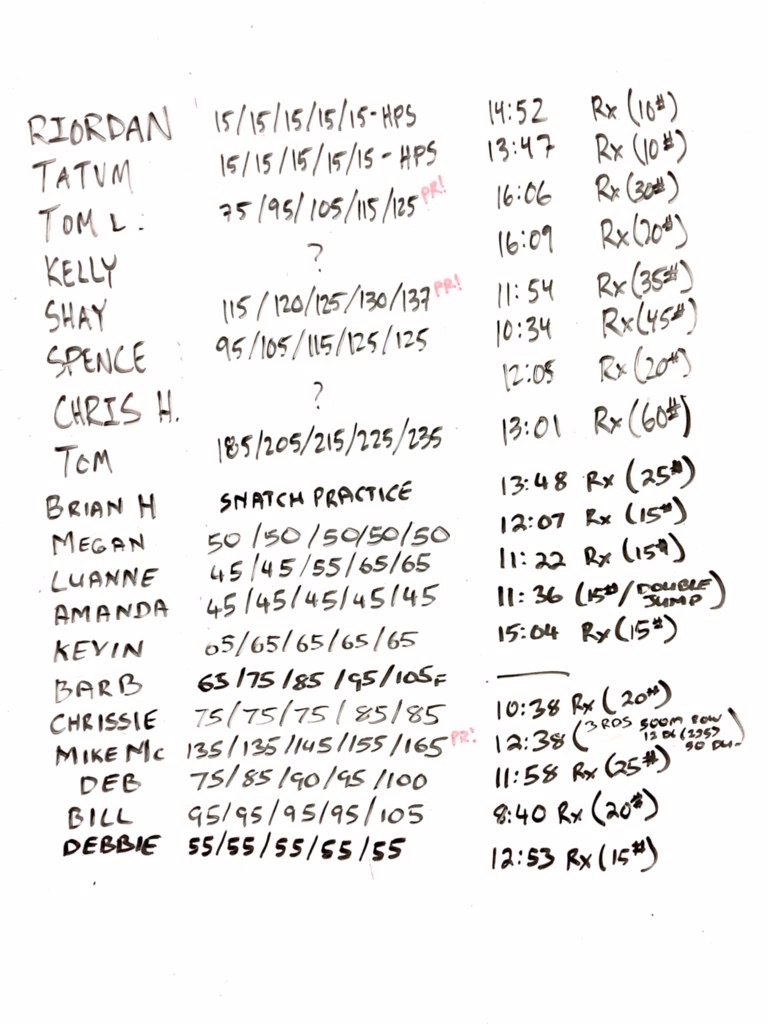 RIORDAN 15/15/15/15/15-HPS 14:52 Rx (10#)
TATUM 15/15/15/15/15 - HPS 13:47 Rx (10#)
TOM L. 75/95/105/115/125 PR! 16:06 Rx (30#)
KELLY ? 16:09 Rx (20#)
SHAY 115/120/125/130/137 PR! 11:54 Rx (35#)
SPENCE 95/105/115/125/125 10:34 Rx (45#)
CHRIS H. ? 12:05 Rx (20#)
TOM 185/205/215/225/235 13:01 Rx (60#)
BRIAN H SNATCH PRACTICE 13:48 Rx (25#)
MEGAN 50/50/50/50/50 12:07 Rx (15#)
LUANNE 45/45/55/65/65 11:22 Rx (15#)
AMANDA 45/45/45/45/45 11:36 (15#/DOUBLE JUMP)
KEVIN 65/65/65/65/65 15:04 Rx (15#)
BARB 65/75/85/95/105F
CHRISSIE 75/75/75/85/85 10:38 Rx (20#)
MIKE MC 135/135/145/155/165 PR! 12:38 (3 RDS 500M ROW 12 DL (225) 50 DU)
DEB 75/85/90/95/100 11:58 Rx (25#)
BILL 95/95/95/95/105 8:40 Rx (20#)
DEBBIE 55/55/55/55/55 12:53 Rx (15#)